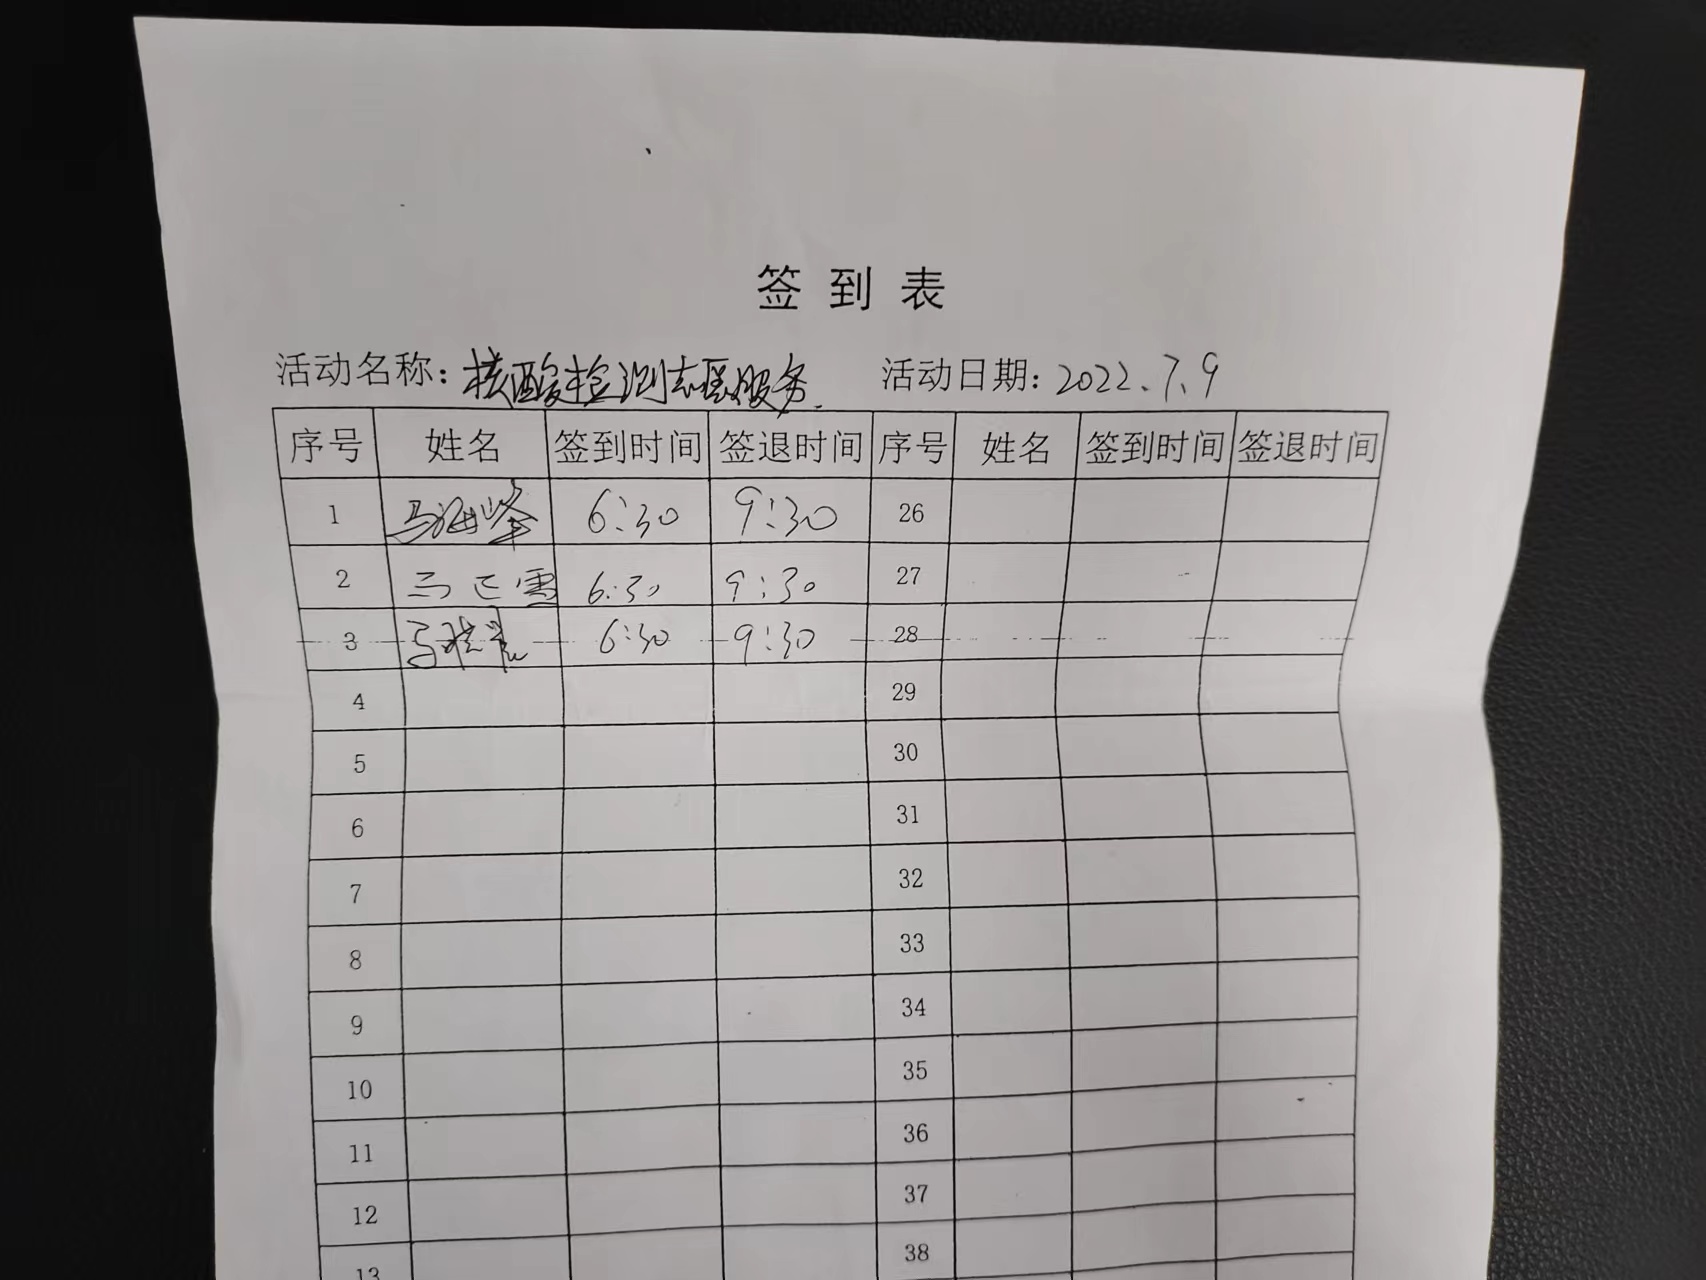 签到表
活动名称：核酸检测志愿服务 活动日期：2022.7.9
序号 姓名 签到时间 签退时间 序号 姓名 签到时间 签退时间
1 马海峰 6:30 9:30 26
2 马 6:30 9:30 27
3 马 6:30 9:30 28
4 29
5 30
6 31
7 32
8 33
9 34
10 35
11 36
12 37
13 38